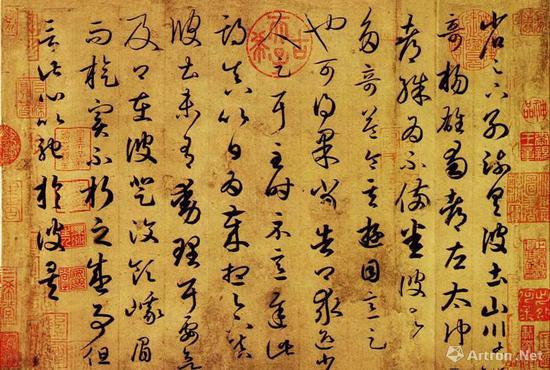 省足下別疏具彼土山川諸
奇揚雄蜀都左太沖三
都殊為不備悉彼故為
多奇益令其遊目意足
也可得果當告卿求迎少
人足耳至時示意遲此期
真以日為歲想足下鎮
彼土未有動理耳要欲
及卿在彼登汶領峨眉
而旋實不朽之盛事但
言此心以馳於彼矣
Artron.Net